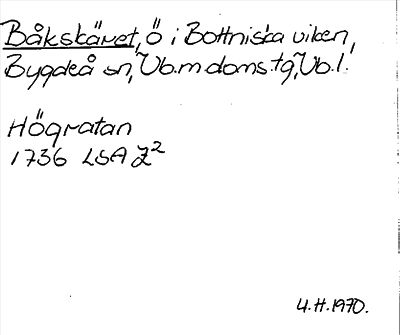 Båkskäret, ö i Bottniska viken,
Bygdeå sn, Vb.m doms.tg, Vb.l.
Högratan
1736 LSA Z²
U.H.1970.